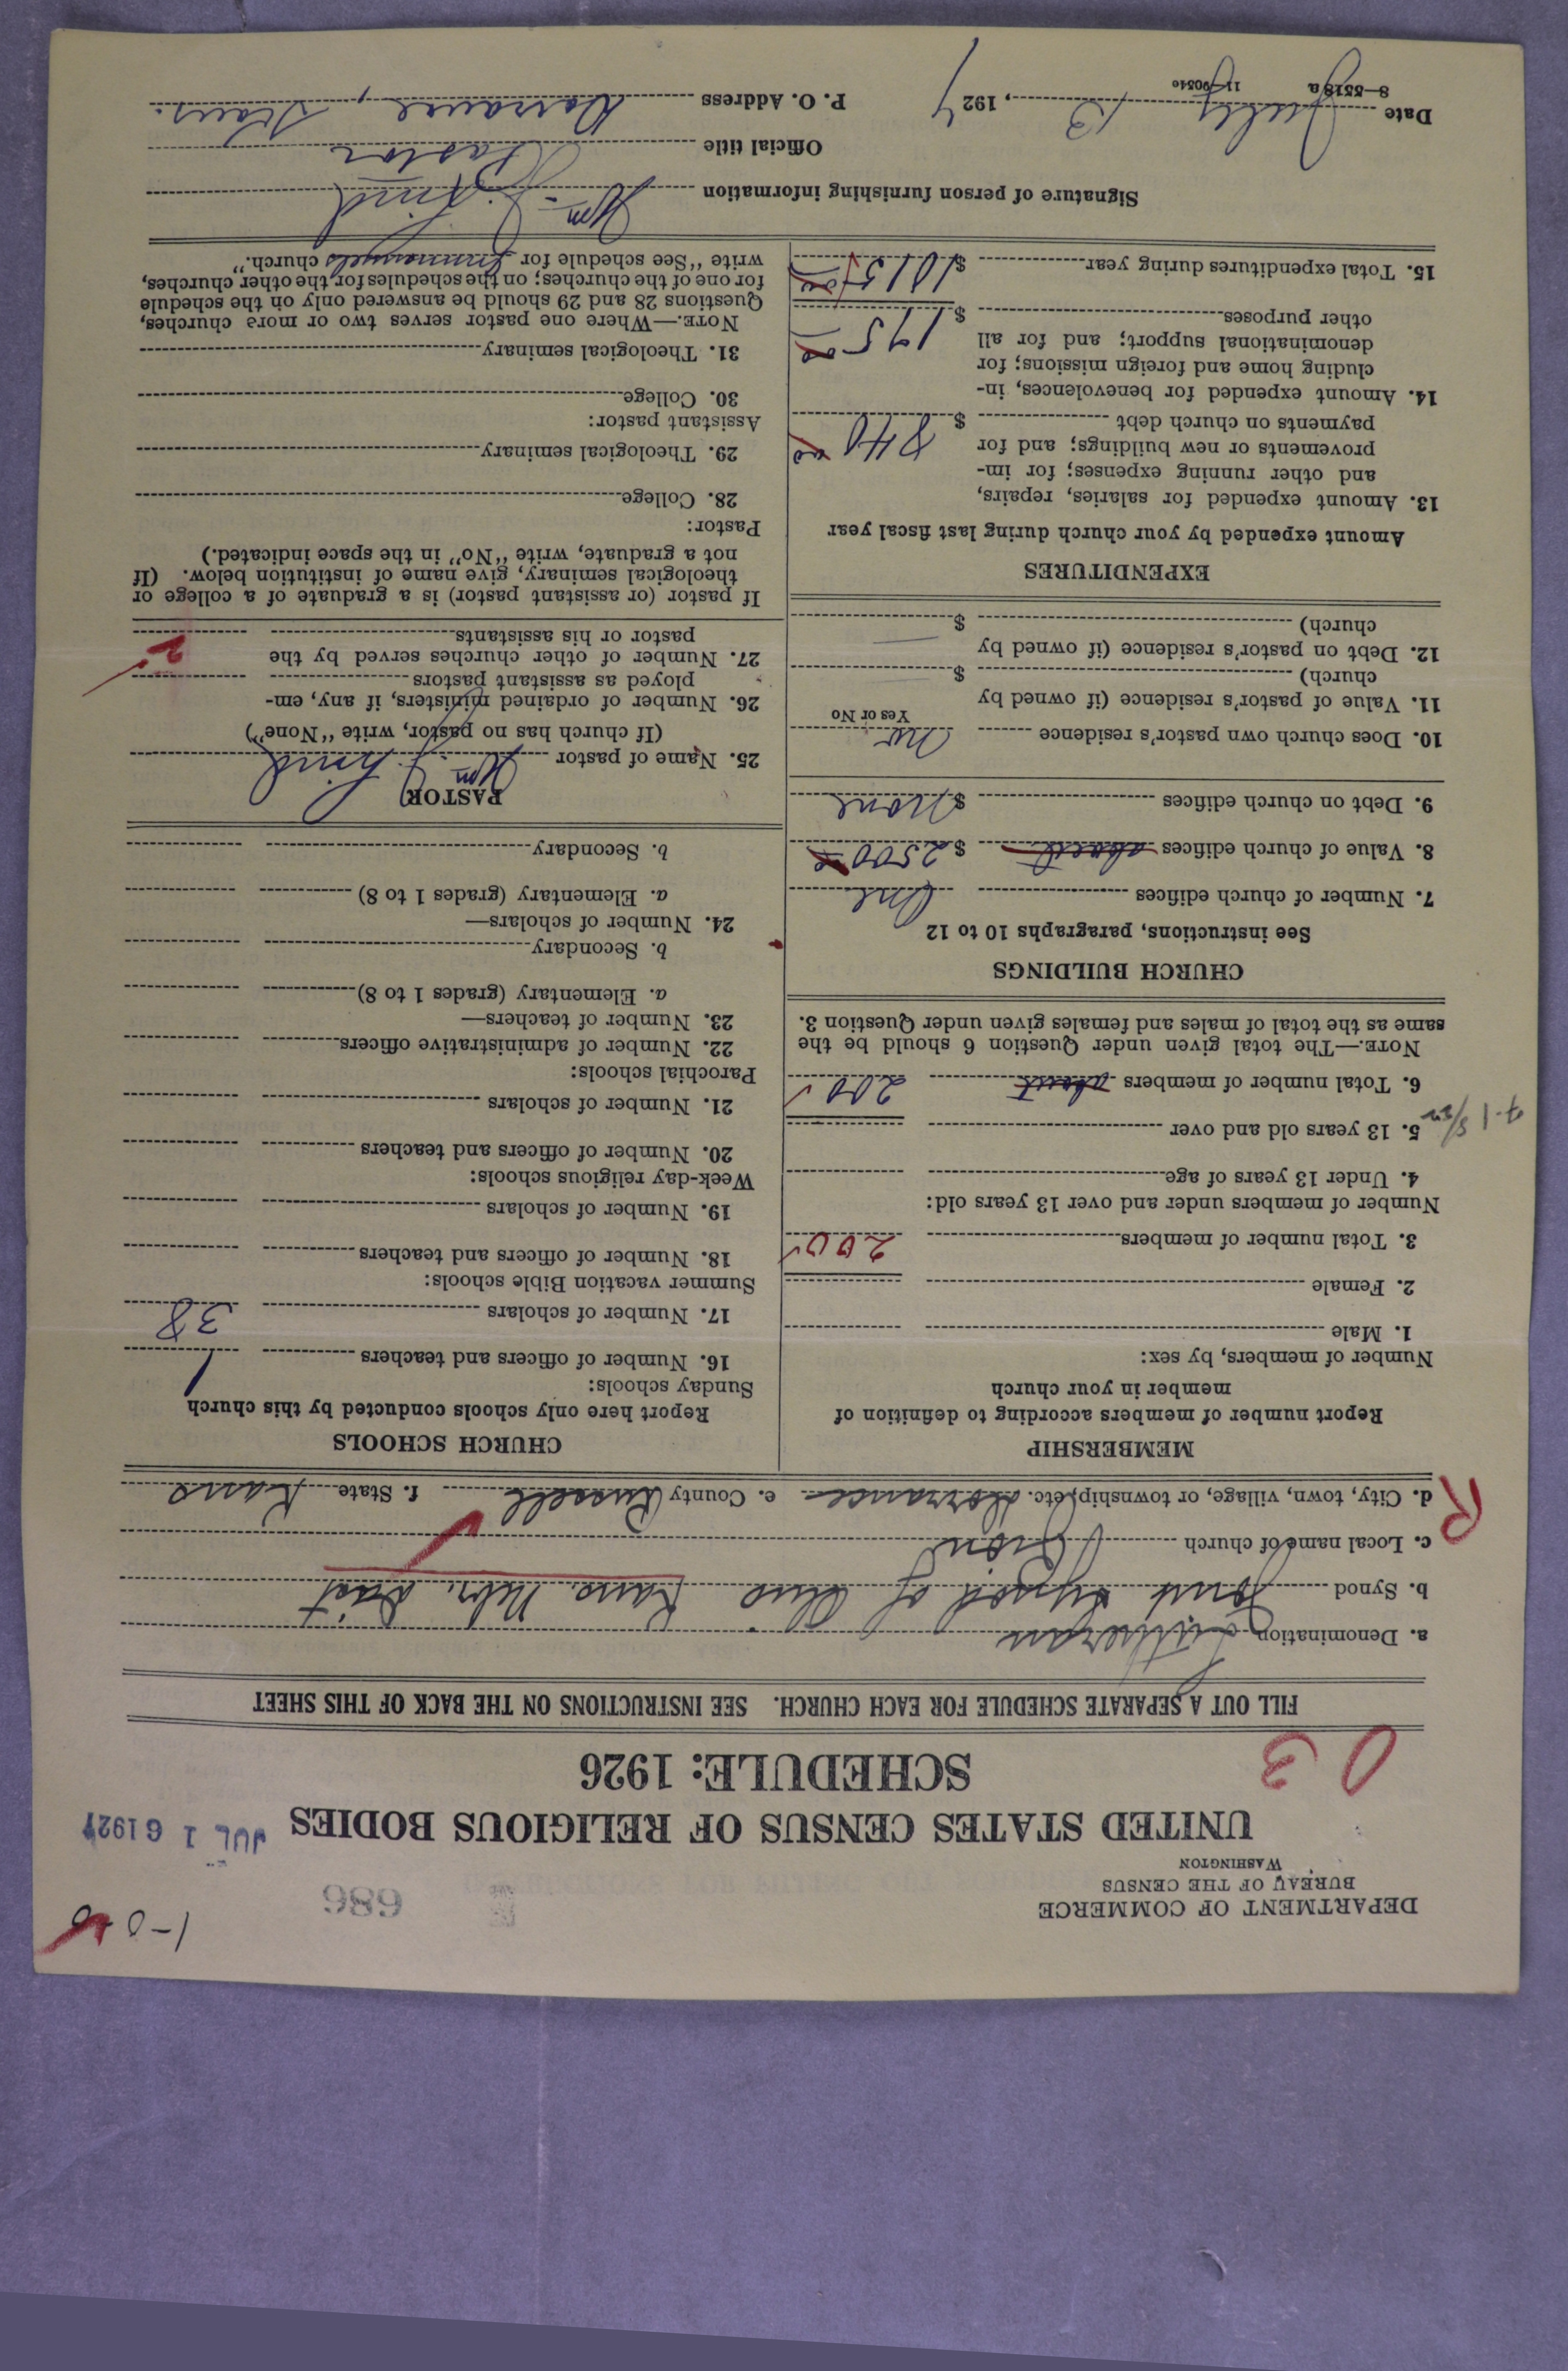 1-0
DEPARTMENT OF COMMERCE
BUREAU OF THE CENSUS
WASHINGTON
686
UNITED STATES CENSUS OF RELIGIOUS BODIES
JUL 16 1927
SCHEDULE: 1926
0 3
FILL OUT A SEPARATE SCHEDULE FOR EACH CHURCH. SEE INSTRUCTIONS ON THE BACK OF THIS SHEET
a. Denomination Lutheran
b. Synod Joint Synod of Ohio Kans. Nebr. Dist
c. Local name of church Zion
R
d. City, town, village, or township, etc. Dorrance e. County Russell f. State Kans
MEMBERSHIP
Report number of members according to definition of
member in your church
Number of members, by sex:
1. Male
2. Female
3. Total number of members 200
Number of members under and over 13 years old:
4. Under 13 years of age
5. 13 years old and over
6. Total number of members about 200
NOTE.—The total given under Question 6 should be the
same as the total of males and females given under Question 3.
CHURCH BUILDINGS
See instructions, paragraphs 10 to 12
7. Number of church edifices One
8. Value of church edifices about $ 2500
9. Debt on church edifices $ None
10. Does church own pastor's residence no
Yes or No
11. Value of pastor's residence (if owned by
church) $
12. Debt on pastor's residence (if owned by
church) $
EXPENDITURES
Amount expended by your church during last fiscal year
13. Amount expended for salaries, repairs,
and other running expenses; for im-
provements or new buildings; and for
payments on church debt $ 840 00
14. Amount expended for benevolences, in-
cluding home and foreign missions; for
denominational support; and for all
other purposes $ 175 00
15. Total expenditures during year $ 1015 00
CHURCH SCHOOLS
Report here only schools conducted by this church
Sunday schools:
16. Number of officers and teachers 1
17. Number of scholars 38
Summer vacation Bible schools:
18. Number of officers and teachers
19. Number of scholars
Week-day religious schools:
20. Number of officers and teachers
21. Number of scholars
Parochial schools:
22. Number of administrative officers
23. Number of teachers—
a. Elementary (grades 1 to 8)
b. Secondary
24. Number of scholars—
a. Elementary (grades 1 to 8)
b. Secondary
PASTOR
25. Name of pastor Wm J.
(If church has no pastor, write "None")
26. Number of ordained ministers, if any, em-
ployed as assistant pastors
27. Number of other churches served by the
pastor or his assistants 2
If pastor (or assistant pastor) is a graduate of a college or
theological seminary, give name of institution below. (If
not a graduate, write "No" in the space indicated.)
Pastor:
28. College
29. Theological seminary
Assistant pastor:
30. College
31. Theological seminary
NOTE.—Where one pastor serves two or more churches,
Questions 28 and 29 should be answered only on the schedule
for one of the churches; on the schedules for the other churches,
write "See schedule for Immanuels church."
Signature of person furnishing information Wm J.
Official title Pastor
Date July 13, 1927 P. O. Address Dorrance, Kans.
8—5518a